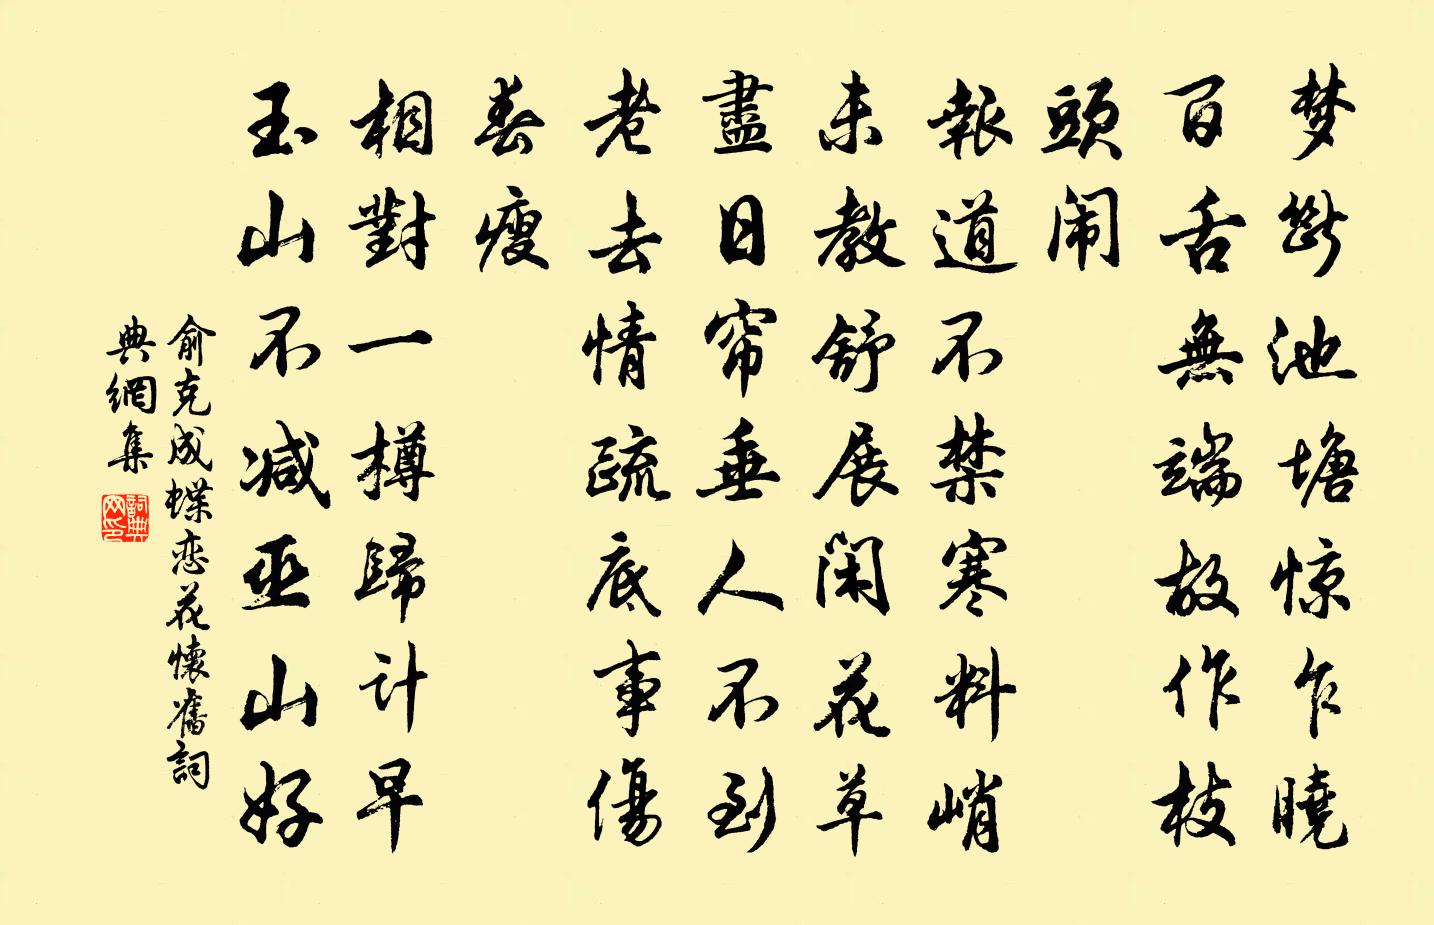 梦断池塘惊乍曉
百舌無端故作枝
頭闹
報道不禁寒料峭
未教舒展闲花草
盡日帘垂人不到
老去情疏底事傷
春瘦
相對一樽歸计早
玉山不减巫山好
俞克成蝶恋花懷舊詞
典網集
詞典网印